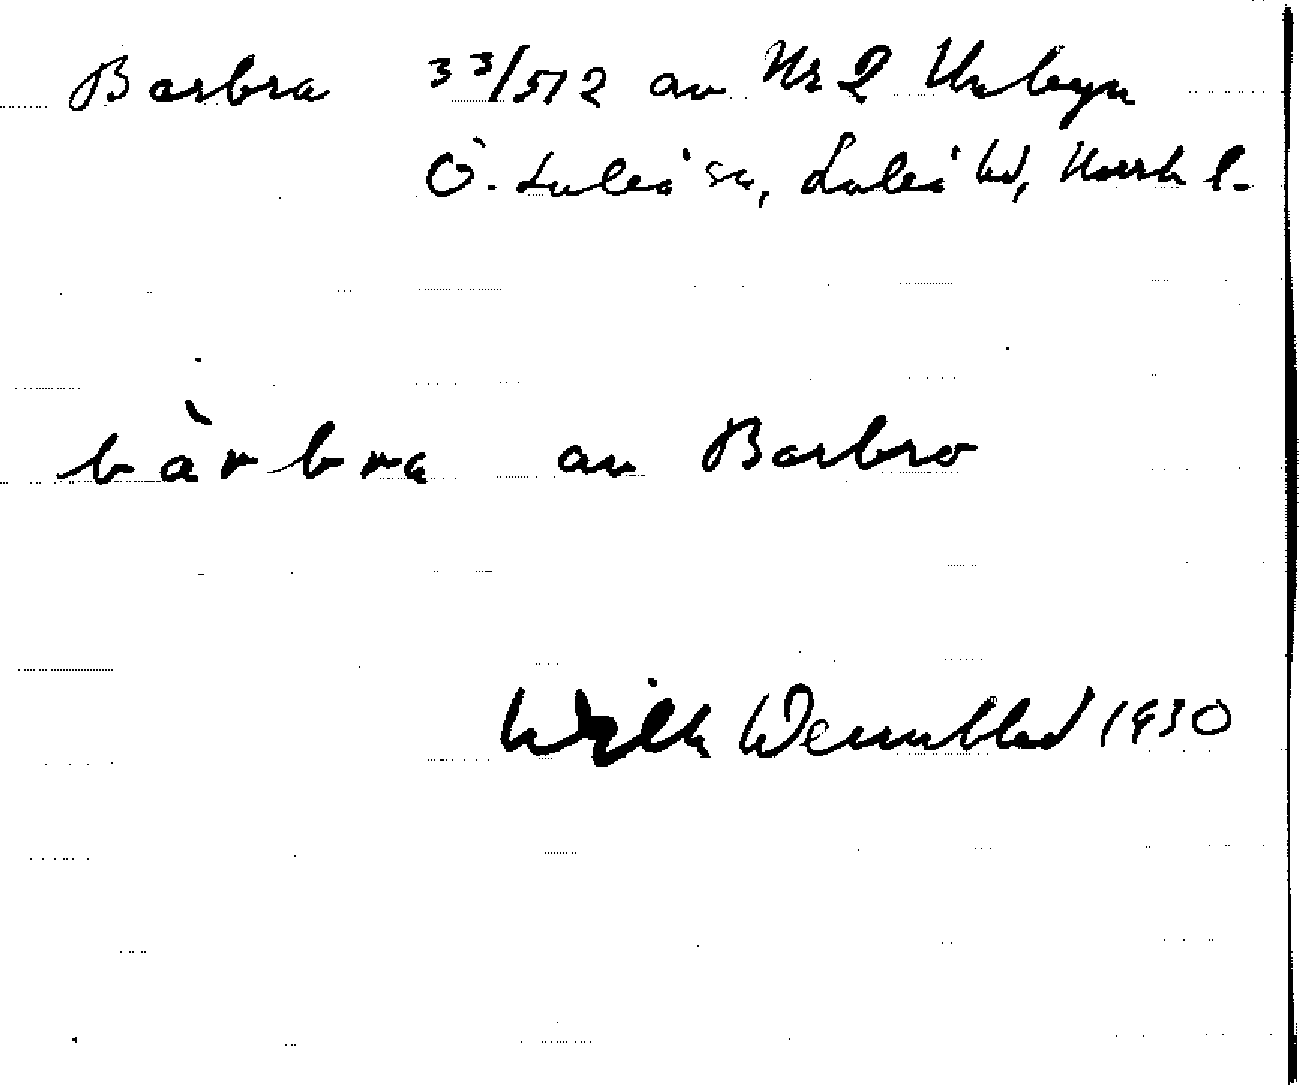 Barbra 33/512 av Nr 2 Unbyn
Ö. Luleå sn, Luleå td, Norrb l.
bàrbra av Barbro
Wilh Wennblad 1930